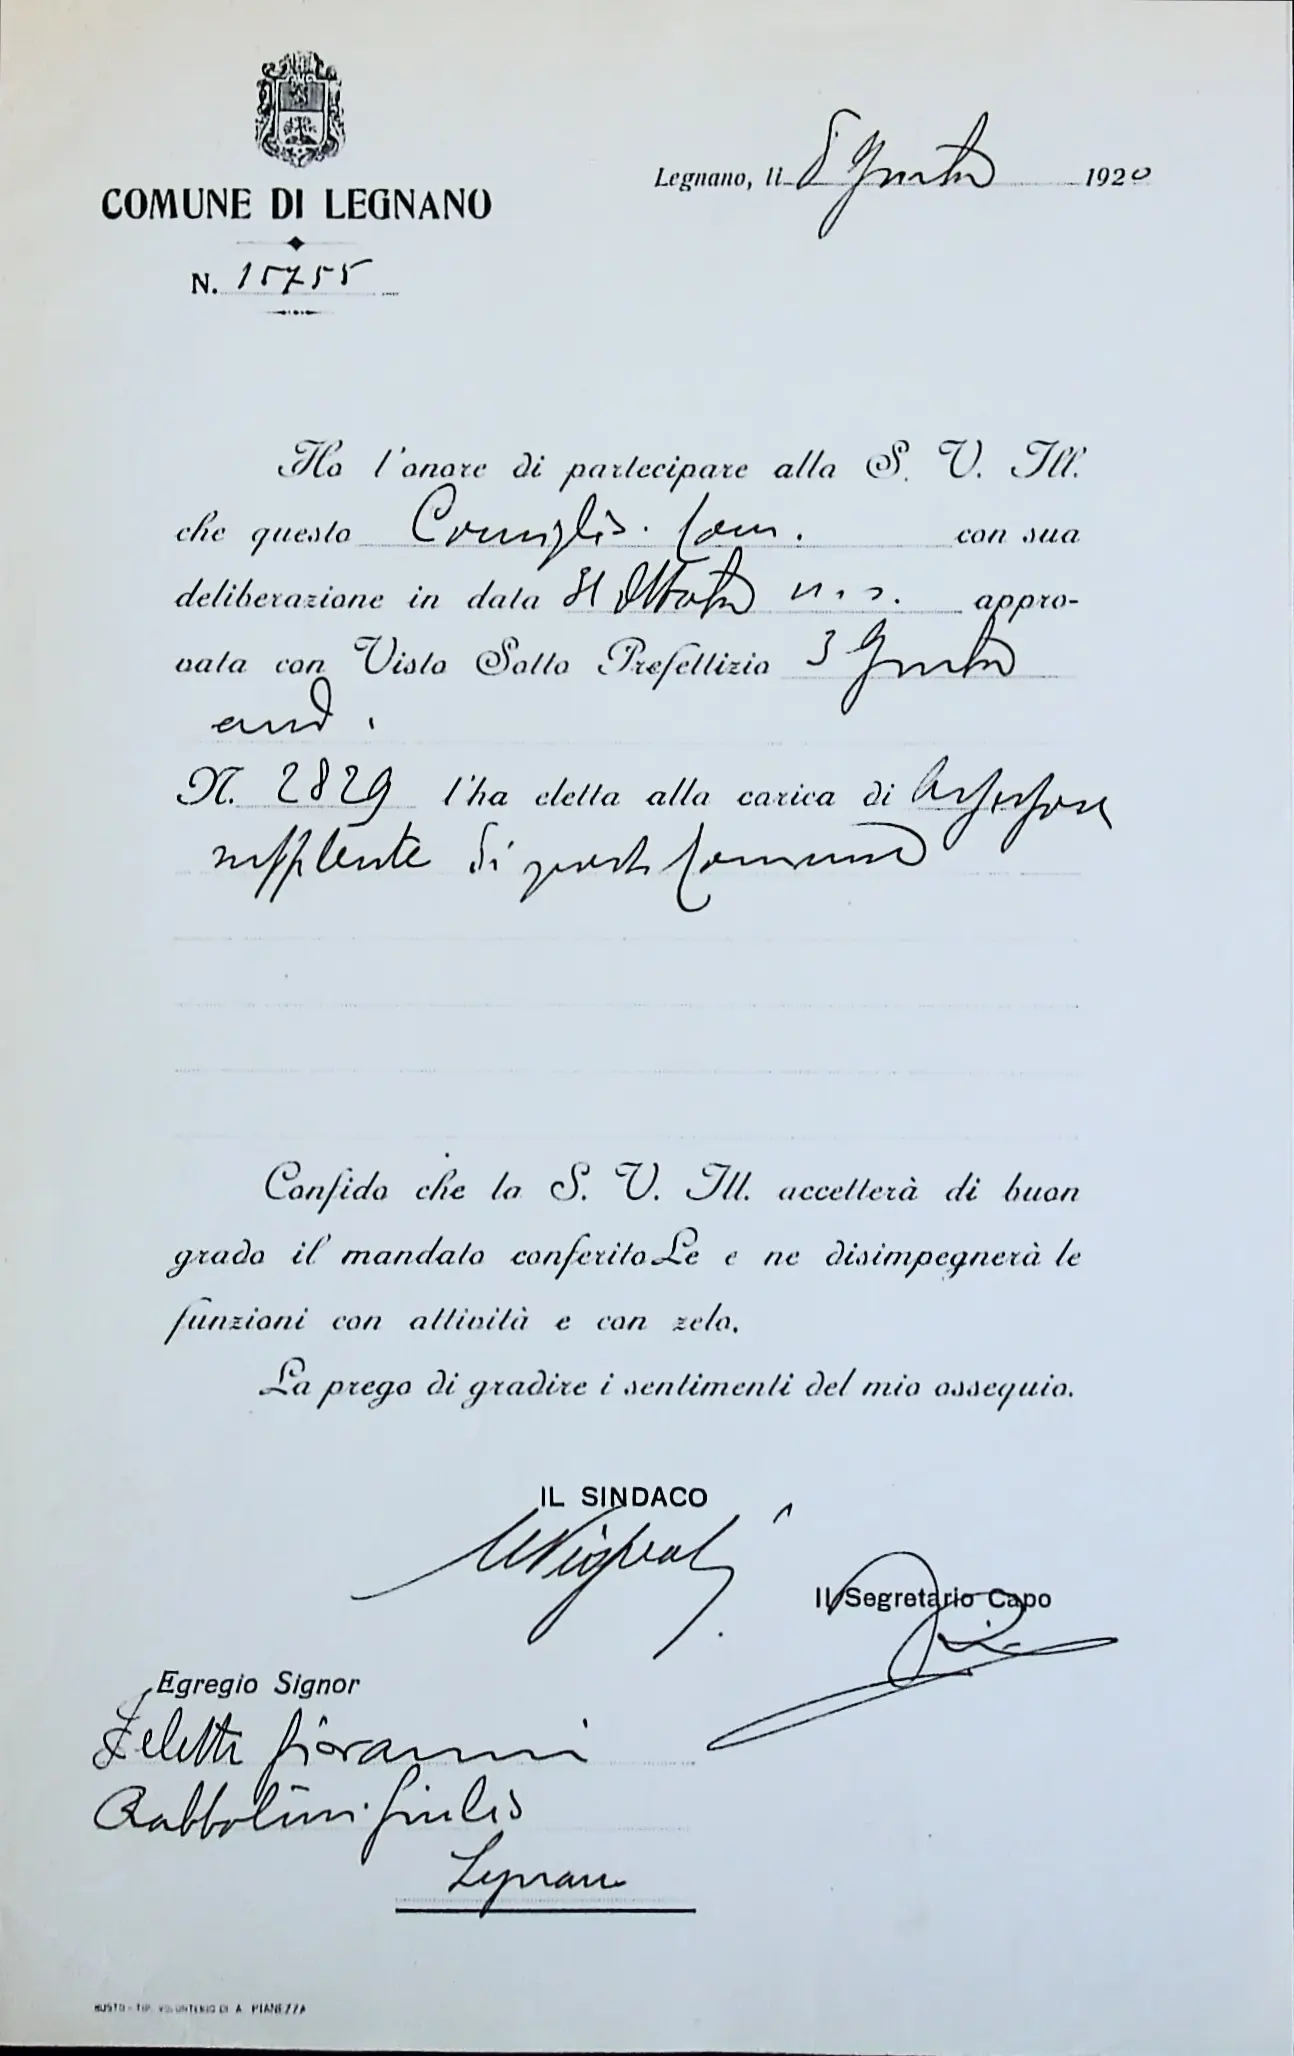 COMUNE DI LEGNANO
N. 15755
Legnano, li 1920
Ho l'onore di partecipare alla S. V. Ill.
che questo Consiglio Com. con sua
deliberazione in data 31 Ottobre u. s. appro-
vata con Visto Sotto Prefettizio 3
and.
N. 2829 l'ha eletta alla carica di Assessore
supplente di questo Comune
Confido che la S. V. Ill. accetterà di buon
grado il mandato conferitoLe e ne disimpegnerà le
funzioni con attività e con zelo.
La prego di gradire i sentimenti del mio ossequio.
IL SINDACO
Il Segretario Capo
Egregio Signor
Giovanni
Rabbolini Giulio
Legnano
BUSTO - TIP. VOLONTERIO DI A. PIANEZZA